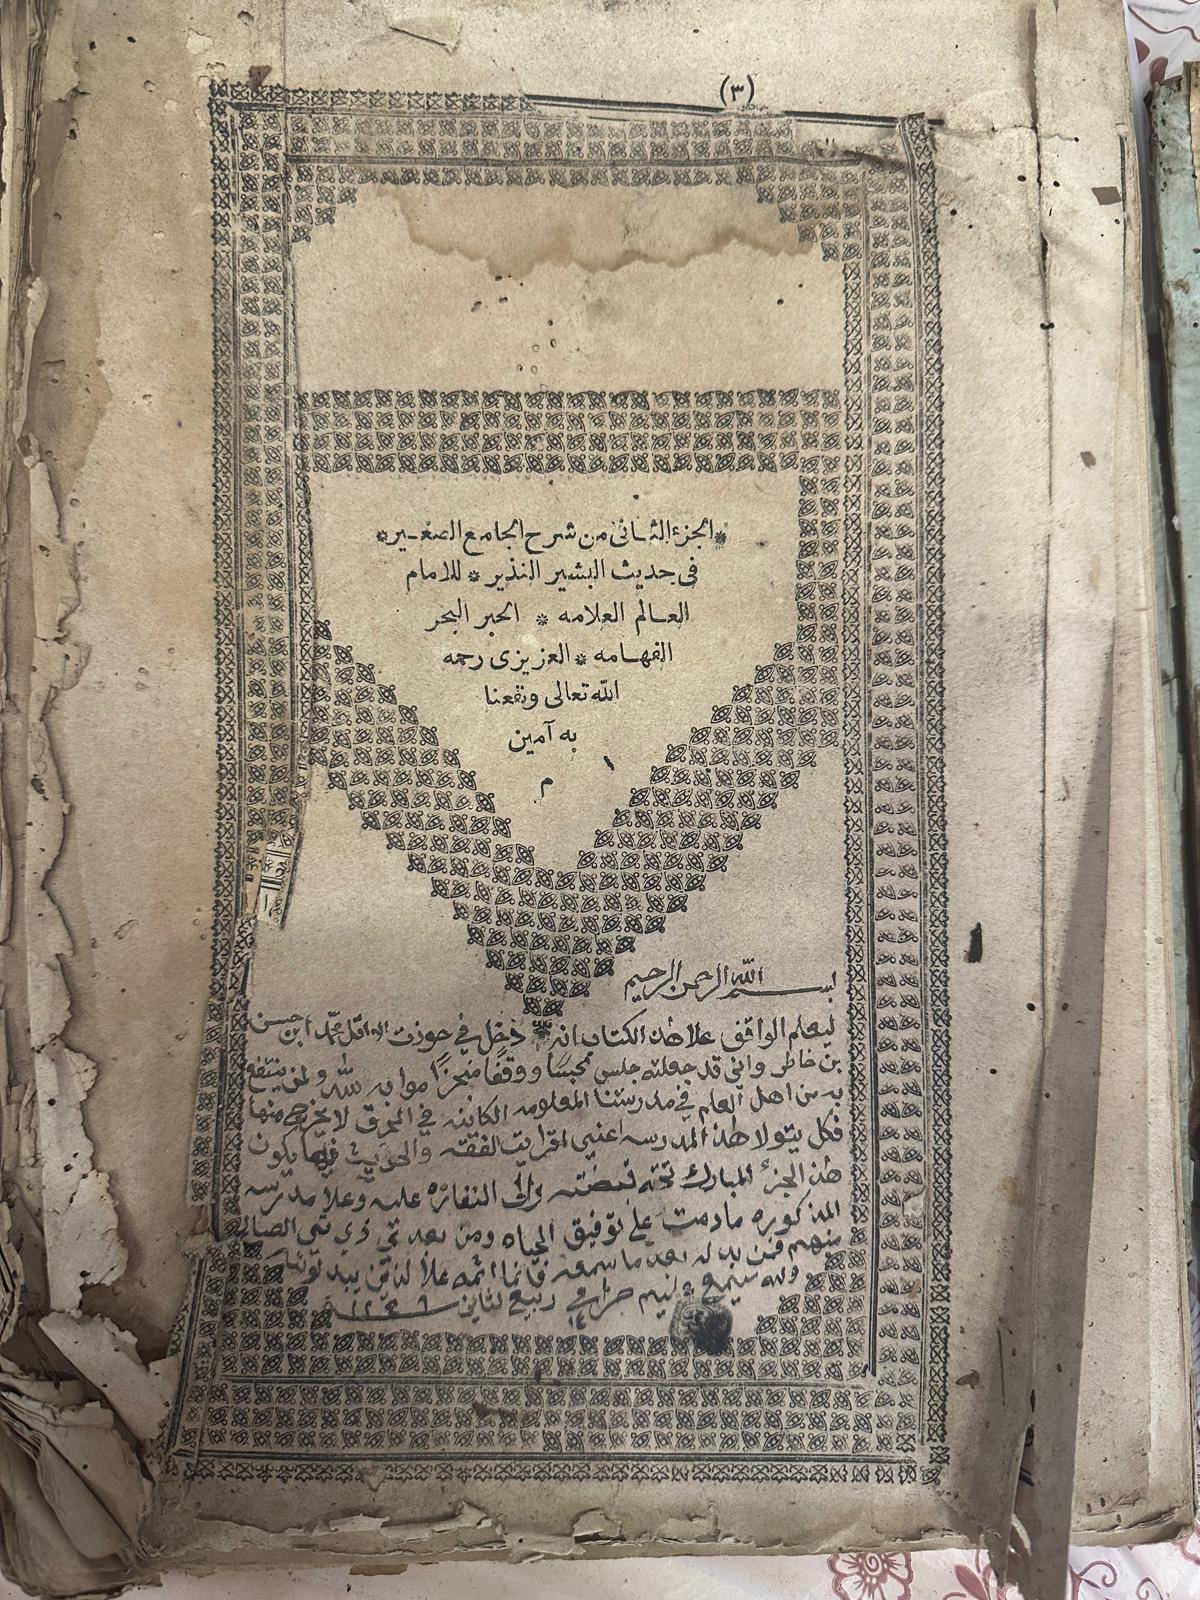 (٣)
*الجزء الثانى من شرح الجامع الصغير*
فى حديث البشير النذير * للامام
العالم العلامه * الحبر البحر
الفهامه * العزيزى رحمه
الله تعالى ونفعنا
به آمين
م
بسم الله الرحمن الرحيم
ليعلم الواقف علا هذ الكتاب انه دخل في حوذت الاقل محمد ابن حسن
بن خاطر واني قد جعلته حبس محبسا ووقفا منجزا لله ولمن ينتفع
به من اهل العلم في مدرستنا المعلومه الكائنه في المحرق لا يخرج منها
فكل يتولا هذ المدرسه اعني اقرايت الفقه والحديث فيها يكون
هذ الجزء المبارك تحت قبضته علبه وعلا مدرسه
المذكوره مادمت علي توفيق الحياه ومن بعدي
منهم فمن بدله بعد ما سمعه فانما اثمه علا الذين يبدلونه
والله سميع عليم في ربيع لثاني